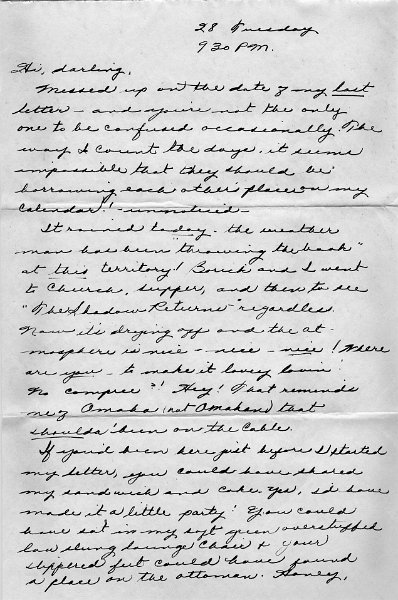 28 Tuesday
9 30 P.M.
Hi, darling,
Messed up on the date of my last
letter - and you're not the only
one to be confused occasionally. The
way I count the days, it seems
impossible that they should be
borrowing each other's place on my
calendar! unnoticed -
It rained today - the weather
man has been "throwing the book"
at this territory! Borick and I went
to Church, supper, and then to see
"The Shadow Returns" regardless.
Now it's drying off and the at-
mosphere is nice - nice - nice! Where
are you - to make it lovey lovin'
No compree?! Hey! That reminds
me of Omaha (not Omahano) that
shoulda been on the cable.
If you'd been here just before I started
my letter, you could have shared
my sandwich and cake. Yes, I'd have
made it a little party! You could
have sat in my soft green overstuffed
low slung lounge chair & your
slippered feet could have found
a place on the ottoman. Honey,